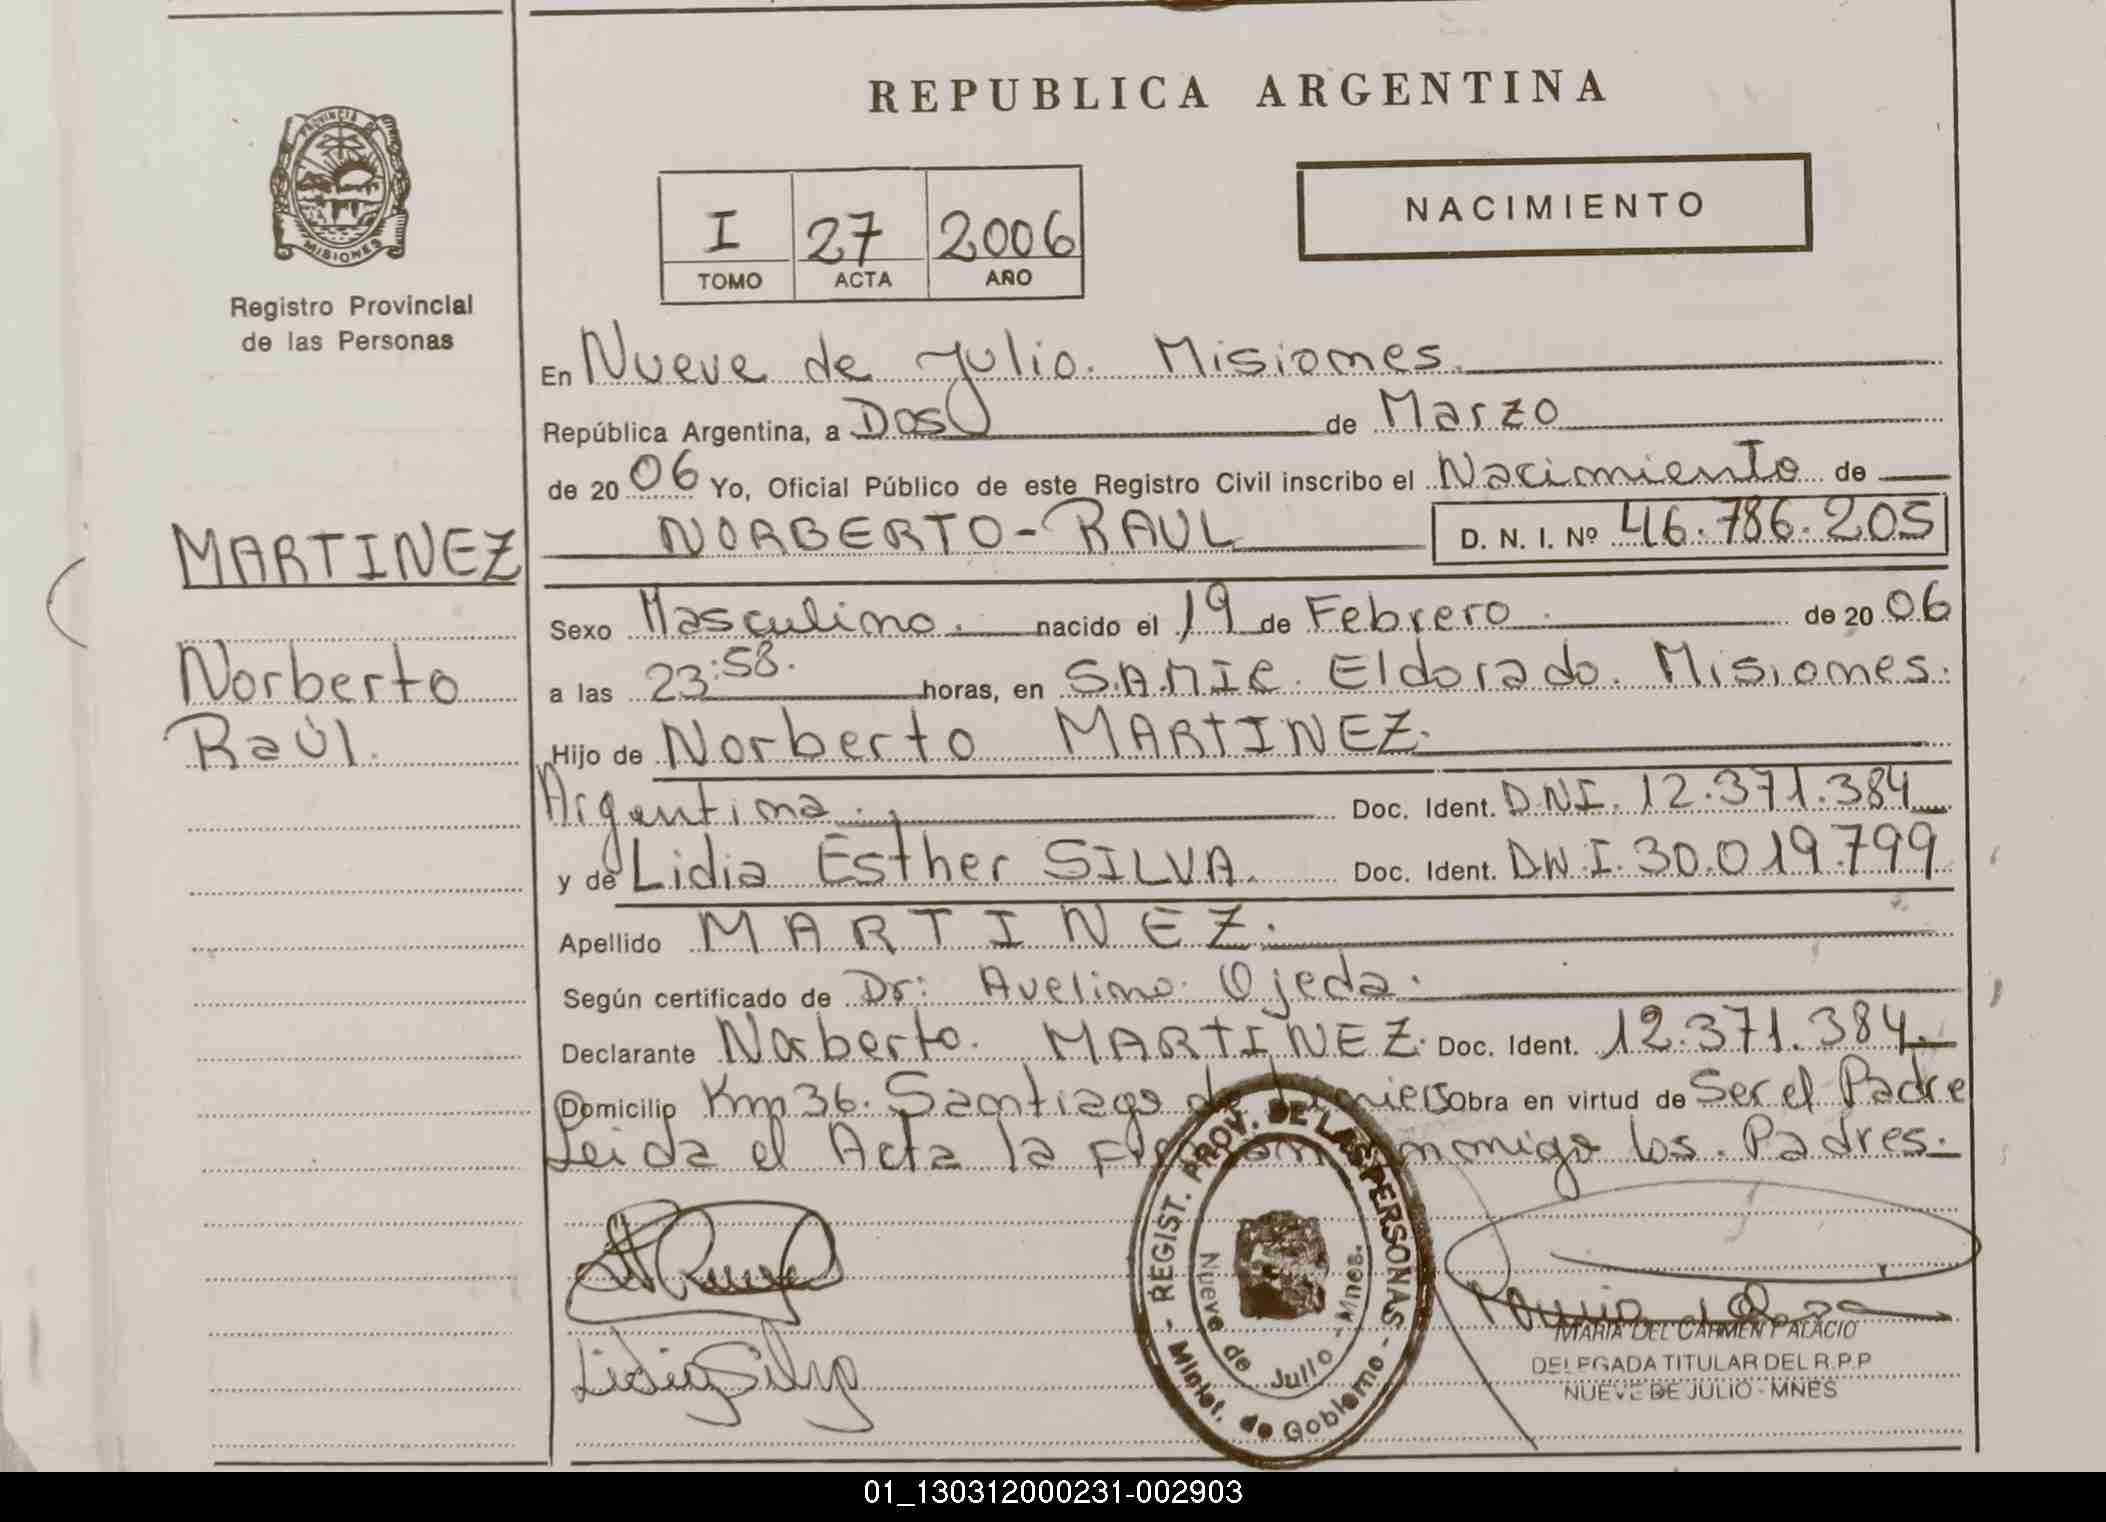 REPUBLICA ARGENTINA
PROVINCIA DE MISIONES
Registro Provincial
de las Personas
I 27 2006
TOMO ACTA AÑO
NACIMIENTO
En Nueve de Julio. Misiones.
República Argentina, a Dos de Marzo
de 20 06 Yo, Oficial Público de este Registro Civil inscribo el Nacimiento de
NORBERTO-RAUL D. N. I. Nº 46.786.205
MARTINEZ
Norberto
Raúl.
Sexo Masculino. nacido el 19 de Febrero. de 20 06
a las 23:58. horas, en S.A.M.I.C. Eldorado. Misiones.
Hijo de Norberto MARTINEZ.
Argentina. Doc. Ident. DNI. 12.371.384
y de Lidia Esther SILVA. Doc. Ident. DN.I. 30.019.799
Apellido MARTINEZ.
Según certificado de Dr: Avelino Ojeda.
Declarante Norberto. MARTINEZ. Doc. Ident. 12.371.384.
Domicilio Km 36. Santiago de Liniers Obra en virtud de Ser el Padre
Leida el Acta la Firman conmigo los Padres.
REGIST. PROV. DE LAS PERSONAS - Minist. de Gobierno -
Nueve de Julio - Mnes.
Lidia Silva
MARIA DEL CARMEN PALACIO
DELEGADA TITULAR DEL R.P.P
NUEVE DE JULIO - MNES
01_130312000231-002903